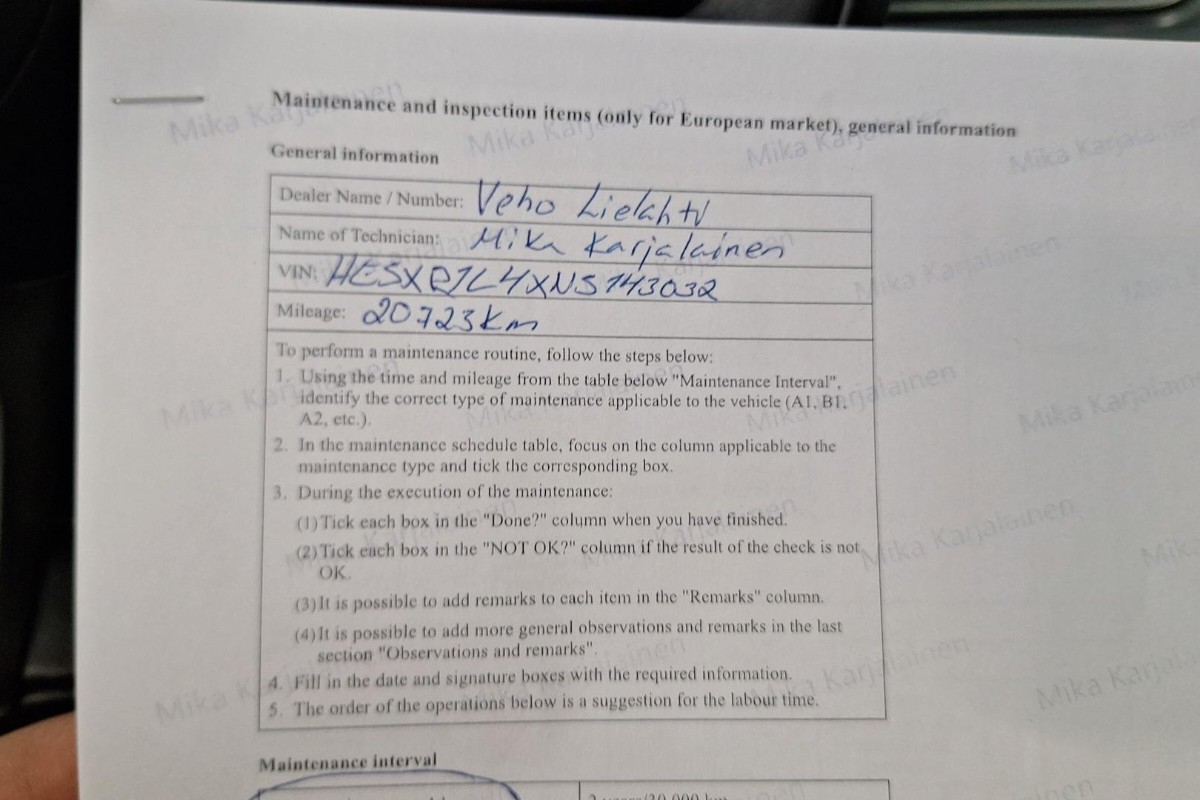 Maintenance and inspection items (only for European market), general information
General information
Dealer Name / Number: Veho Lielahti
Name of Technician: Mika Karjalainen
VIN: HESXR7L4XNS143032
Mileage: 20723km
To perform a maintenance routine, follow the steps below:
1. Using the time and mileage from the table below "Maintenance Interval",
identify the correct type of maintenance applicable to the vehicle (A1, B1,
A2, etc.).
2. In the maintenance schedule table, focus on the column applicable to the
maintenance type and tick the corresponding box.
3. During the execution of the maintenance:
(1) Tick each box in the "Done?" column when you have finished.
(2) Tick each box in the "NOT OK?" column if the result of the check is not
OK.
(3) It is possible to add remarks to each item in the "Remarks" column.
(4) It is possible to add more general observations and remarks in the last
section "Observations and remarks".
4. Fill in the date and signature boxes with the required information.
5. The order of the operations below is a suggestion for the labour time.
Maintenance interval
Mika Karjalainen